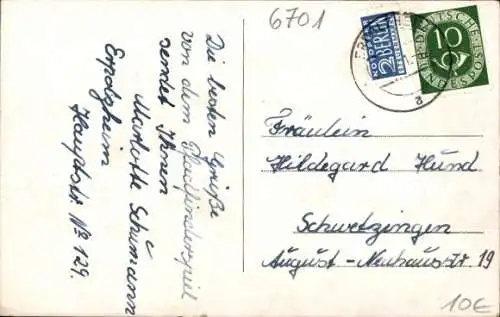 6701
Die besten Grüße
von dem Pfadfinderspiel
sendet Ihnen
Marlotte Schümann
Erpolzheim
Hauptstr. No 129.
NOTOPFER
2 BERLIN
STEUERMARKE
DEUTSCHE BUNDESPOST
10
a
Fräulein
Hildegard Hund
Schwetzingen
August-Neuhausstr. 19
10€